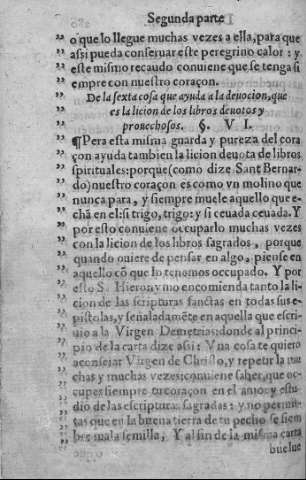 Segunda parte
o que lo llegue muchas vezes a ella, para que
assi pueda conseruar este peregrino calor: y
este mismo recaudo conuiene que se tenga si
empre con nuestro coraçon.
De la sexta cosa que ayuda a la deuocion, que
es la licion de los libros deuotos y
prouechosos. §. V I.
¶Pera esta misma guarda y pureza del cora
çon ayuda tambien la licion deuota de libros
spirituales: porque (como dize Sant Bernar-
do) nuestro coraçon es como vn molino que
nunca para, y siempre muele aquello que e-
chã en el: si trigo, trigo: y si ceuada ceuada. Y
por esto conuiene occuparlo muchas vezes
con la licion de los libros sagrados, porque
quando quiere de pensar en algo, piense en
aquello cõ que lo tenemos occupado. Y por
esto S. Hieronymo encomienda tanto la li-
cion de las scripturas sanctas en todas sus e-
pistolas, y señaladamẽte en aquella que escri-
uio a la Virgen Demetrias: donde al princi-
pio de la carta dize assi: Vna cosa te quiero
aconsejar Virgen de Christo, y repetir la mu
chas y muchas vezes: conuiene saber, que oc-
cupes siempre tu coraçon en el amor y estu-
dio de las escripturas sagradas: y no permi-
tas que en la buena tierra de tu pecho se siem
bre mala semilla. Y al fin de la misma carta
buelue